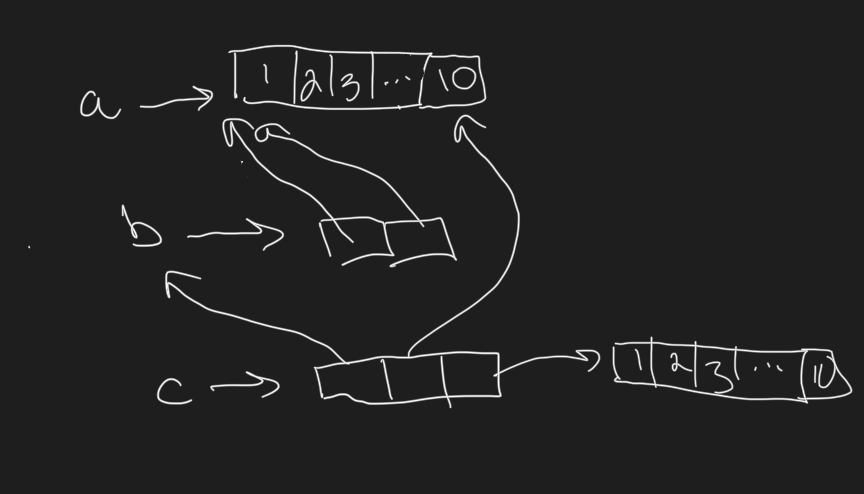 1 2 3 ... 10
a
b
c
1 2 3 ... 10